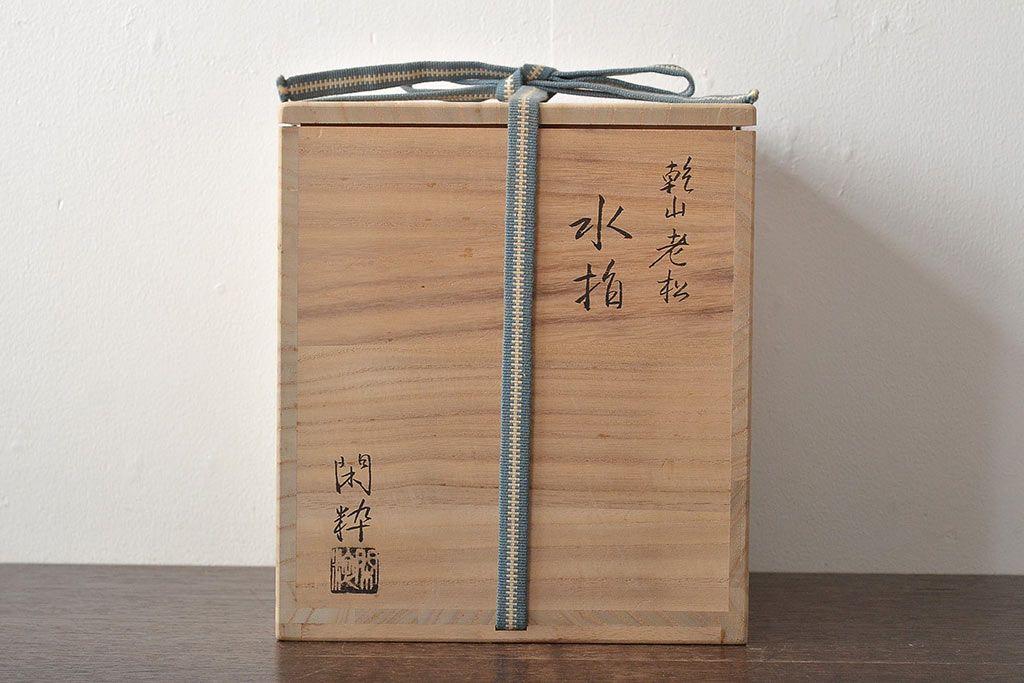 乾山老松
水指
閑粋